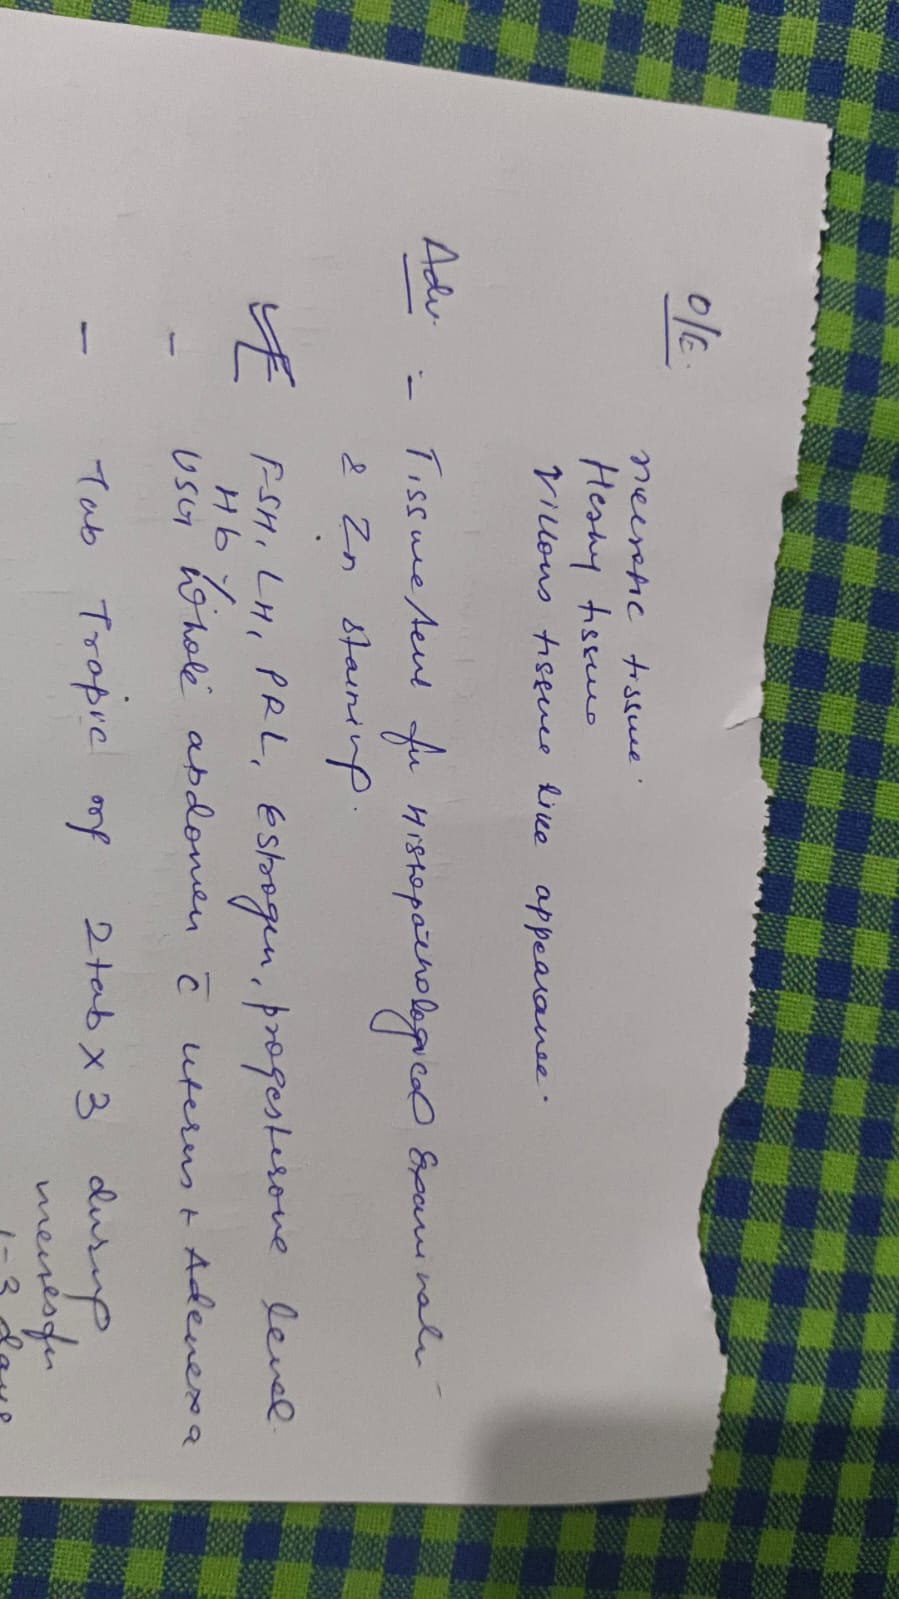 O/E.
necrotic tissue.
Fleshy tissue
villous tissue like appearance.
Adv. - Tissue sent for Histopathological Examinatn
& Zn staining.
FSH, LH, PRL, Estrogen, progesterone level.
Hb,
- USG whole abdomen c̄ uterus + Adenexa
- Tab Trapic mf 2tab x 3 during
menses for
1-3 days